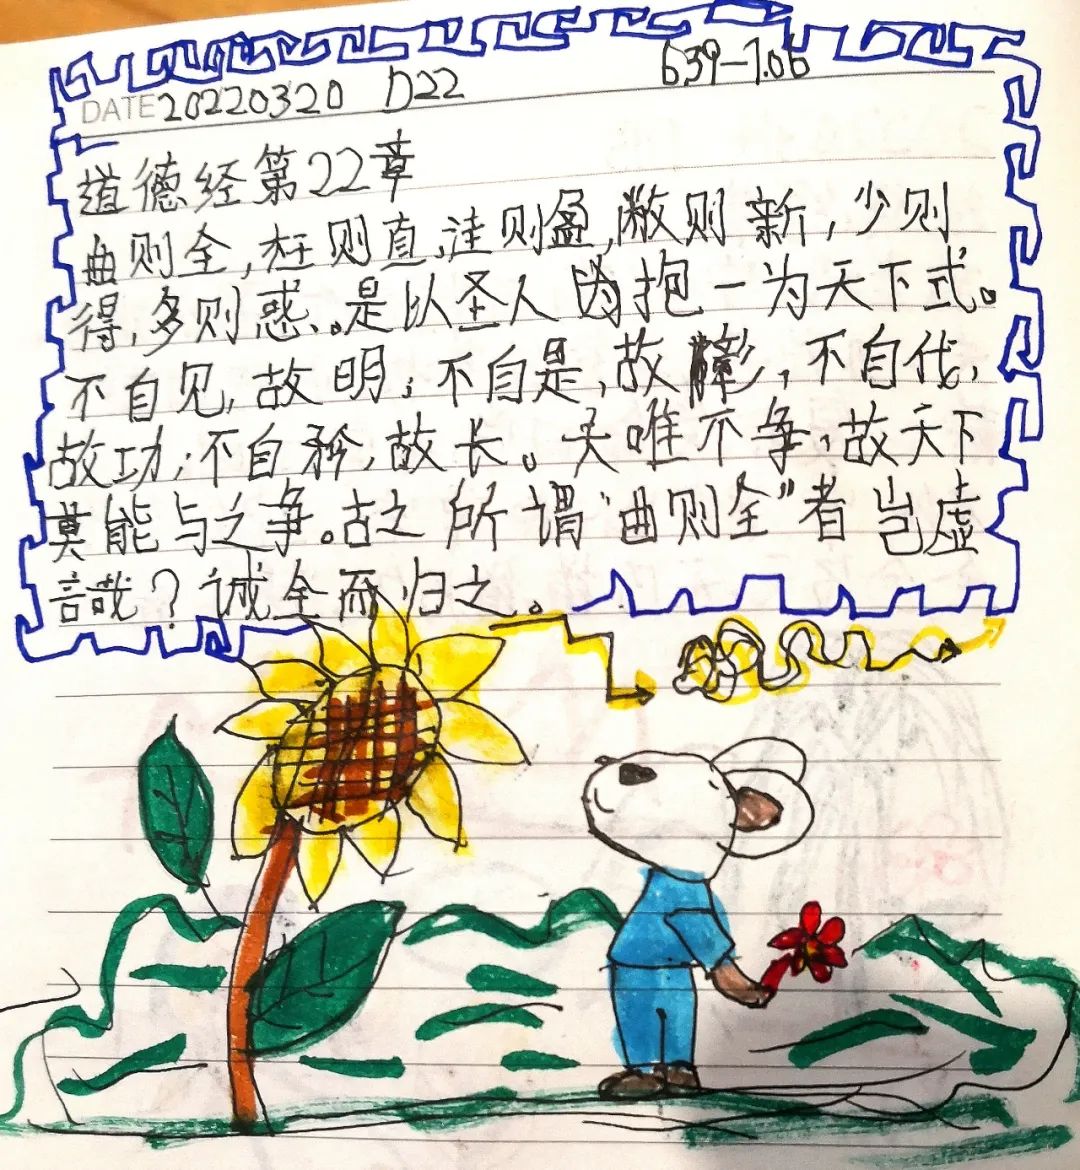 DATE 20220320 D22 6.39-7.06
道德经第22章
曲则全,枉则直,洼则盈,敝则新,少则
得,多则惑。是以圣人抱一为天下式。
不自见,故明;不自是,故彰;不自伐,
故功;不自矜,故长。夫唯不争,故天下
莫能与之争。古之所谓“曲则全”者岂虚
言哉?诚全而归之。